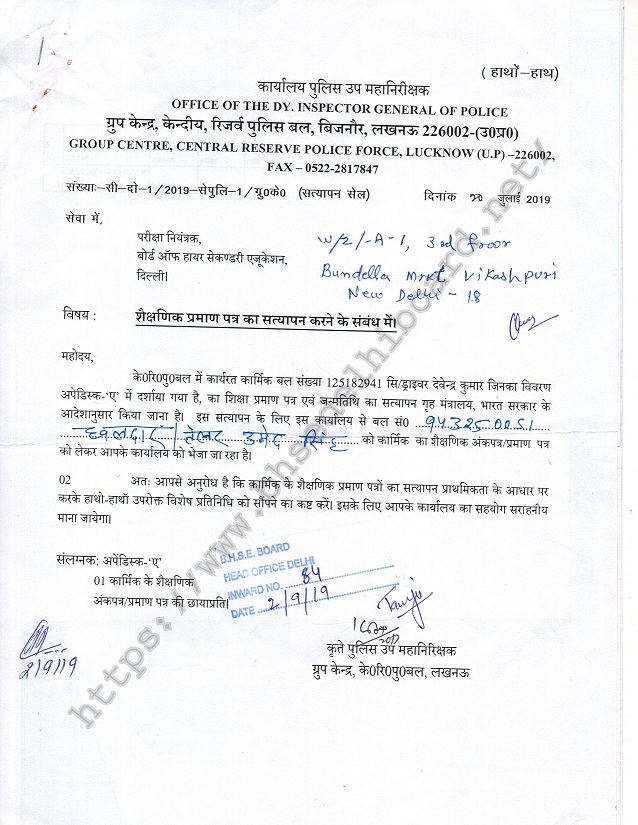 1
(हाथों-हाथ)
कार्यालय पुलिस उप महानिरीक्षक
OFFICE OF THE DY. INSPECTOR GENERAL OF POLICE
ग्रुप केन्द्र, केन्दीय, रिजर्व पुलिस बल, बिजनौर, लखनऊ 226002-(उ0प्र0)
GROUP CENTRE, CENTRAL RESERVE POLICE FORCE, LUCKNOW (U.P) –226002,
FAX – 0522-2817847
संख्याः-सी-दो-1/2019-सेपुलि-1/यु0के0 (सत्यापन सेल) दिनांक जुलाई 2019
सेवा में,
परीक्षा नियंत्रक,
बोर्ड ऑफ हायर सेकण्डरी एजूकेशन,
दिल्ली।
W/2/-A-1, 3rd floor
Bundella Mrkt Vikashpuri
New Delhi - 18
विषय : शैक्षणिक प्रमाण पत्र का सत्यापन करने के संबंध में।
महोदय,
के0रि0पु0बल में कार्यरत कार्मिक बल संख्या 125182941 सि/ड्राइवर देवेन्द्र कुमार जिनका विवरण
अपेडिस्क-'ए' में दर्शाया गया है, का शिक्षा प्रमाण पत्र एवं जन्मतिथि का सत्यापन गृह मंत्रालय, भारत सरकार के
आदेशानुसार किया जाना है। इस सत्यापन के लिए इस कार्यालय से बल सं0 943250051
हवलदार/टेलर उमेद सिंह को कार्मिक का शैक्षणिक अंकपत्र/प्रमाण पत्र
को लेकर आपके कार्यालय को भेजा जा रहा है।
02 अतः आपसे अनुरोध है कि कार्मिक के शैक्षणिक प्रमाण पत्रों का सत्यापन प्राथमिकता के आधार पर
करके हाथो-हाथों उपरोक्त विशेष प्रतिनिधि को सौंपने का कष्ट करें। इसके लिए आपके कार्यालय का सहयोग सराहनीय
माना जायेगा।
संलग्नकः अपेंडिस्क-'ए'
01 कार्मिक के शैक्षणिक
अंकपत्र/प्रमाण पत्र की छायाप्रति।
B.H.S.E. BOARD
HEAD OFFICE DELHI
INWARD NO. 84
DATE 2/9/19
कृते पुलिस उप महानिरिक्षक
ग्रुप केन्द्र, के0रि0पु0बल, लखनऊ
2/9/19
https://www.bhsedelhiboard.net/